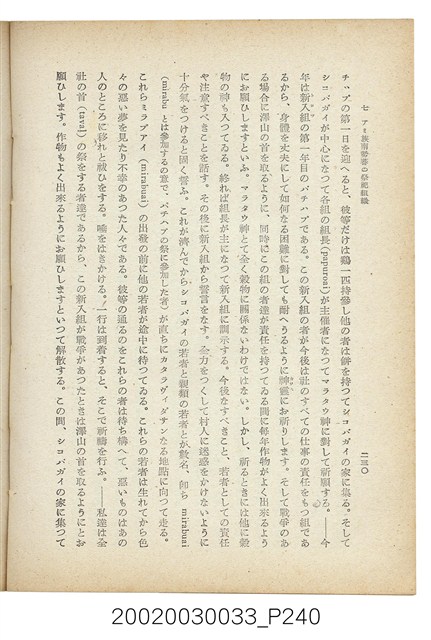 七 アミ族南勢蕃の祭祀組織 二三〇
チハブの第一日を迎へると、彼等だけは鶏一匹持參し他の者は餅を持つてシコバガイの家に集る。そして
シコバガイが中心になつて各組の組長(papuroa)が主催者になつてマラタウ神に對して祈願する。――今
年は新入組の第一年目のパチハブである。この新入組の者が今後は社のすべての仕事の責任をもつ組であ
るから、身體を丈夫にして如何なる困難に對しても耐へうるように神靈にお祈りします。そして戰爭のあ
る場合に澤山の首を取るように、同時にこの組の者達が責任を持つてゐる間に毎年作物がよく出來るよう
にお願ひしますといふ。マラタウ神とて全く穀物に關係ないわけではない。しかし、祈るときには他に穀
物の神も入つてゐる。終れば組長が主になつて新入組に訓示する。今後なすべきこと、若者としての責任
や注意すべきことを話す。その後に新入組から誓言をなす。全力をつくして村人に迷惑をかけないように
十分氣をつけると固く誓ふ。これが濟んでからシコバガイの若者と親類の若者とが數名、卽ち mirabuai
(mirabu とは參加するの意で、パチハブの祭に參加した者)が直ちにカタラヴィダサンなる地點に向つて走る。
これらミラブアイ(mirabuai)の出發の前に他の若者が途中に待つてゐる。これらの若者は生れてから色
々の惡い夢を見たり不幸のあつた人々である。彼等の通るのをこれらの者は待ち構へて、惡いものはあの
人のところに移れと祓ひをする。唾をはきかける。一行は到着すると、そこで祈禱を行ふ。――私達は全
社の首(tava)の祭をする者達であるから、この新入組が戰爭があつたときは澤山の首を取るようにとお
願ひします。作物もよく出來るようにお願ひしますといつて解散する。この間、シコバガイの家に集つて
20020030033_P240